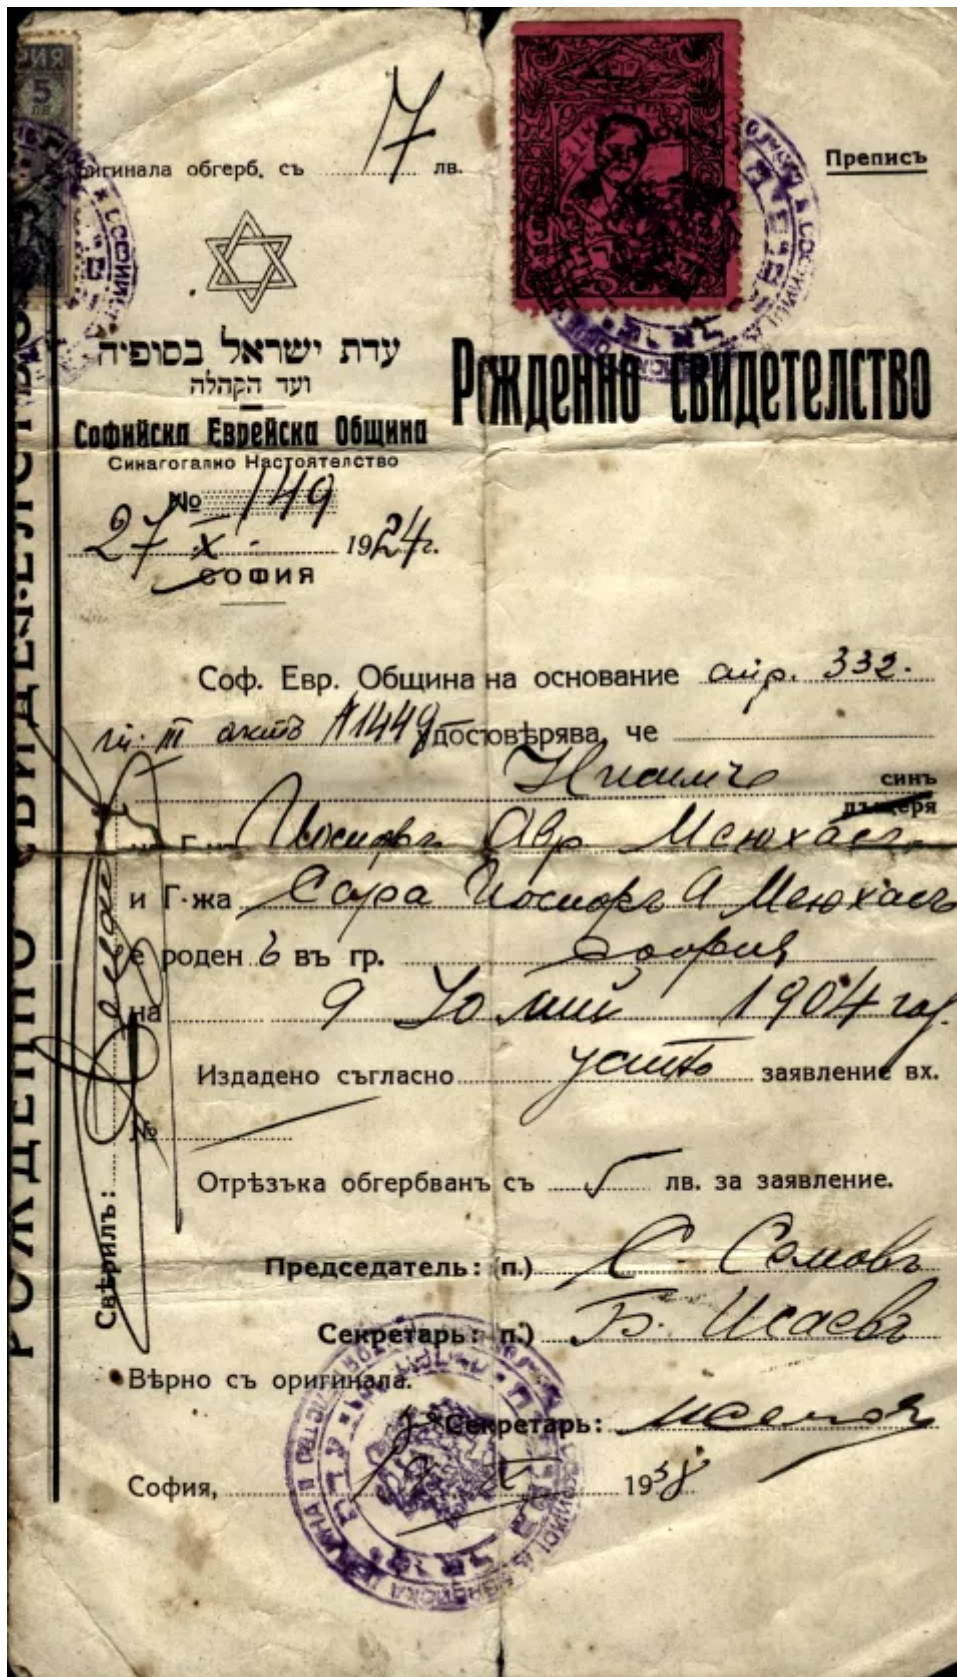 РИЯ
5
ЛВ
оригинала обгерб. съ 7 лв.
Преписъ
עדת ישראל בסופיה
ועד הקהלה
Софийска Еврейска Община
Синагогално Настоятелство
№ 149
27 X 1924 г.
СОФИЯ
Рожденно свидетелство
РОЖДЕННО СВИДЕТЕЛСТВО
Соф. Евр. Община на основание 332.
III актъ №1449 удостовѣрява, че
Нисимъ синъ
дъщеря
на Г-нъ Йосифъ Авр Меюхасъ
и Г-жа Сара Йосифъ А Меюхасъ
е роден ъ въ гр. София
на 9 Юлий 1904 год.
Издадено съгласно устно заявление вх.
№
Отрѣзъка обгербванъ съ 5 лв. за заявление.
Свѣрилъ:
Председатель: (п.) С. Семовъ
Секретарь: п.) Б. Исаевъ
Вѣрно съ оригинала.
Секретарь:
София, 1938